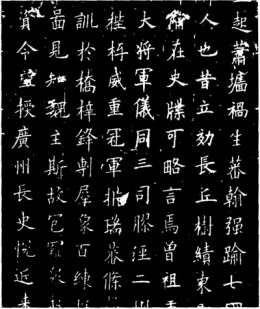 起蕭墻禍生蕃翰强踰七
人也昔立効長丘樹績東
在史牒可略言焉曾祖
大将軍儀同三司滕涇二州
威重冠軍瑞蕃條
訓於橋梓鋒剸犀象百練
見知魏主斯故包
資令望授廣州長史悅近来